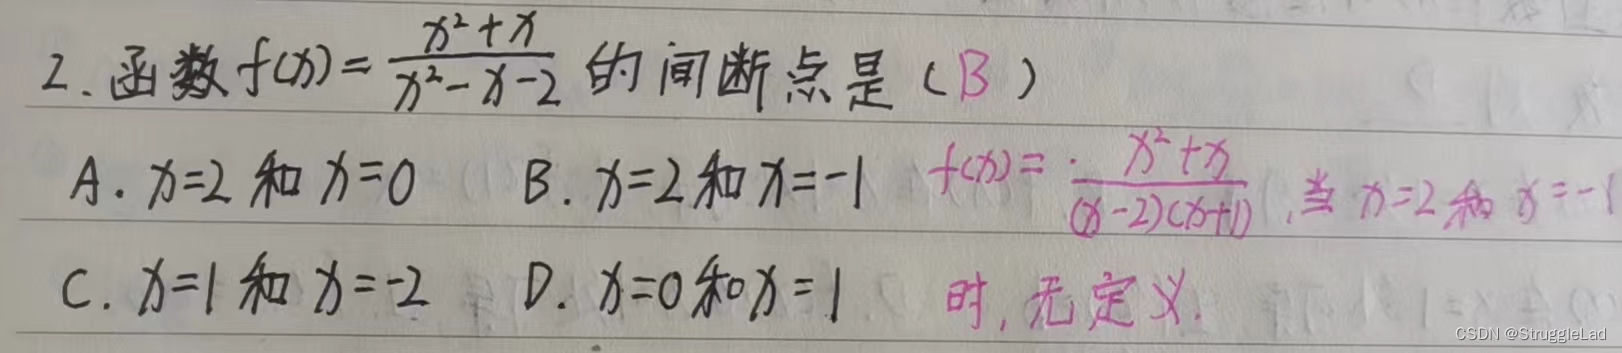 2. 函数 f(x) = (x²+x)/(x²-x-2) 的间断点是 ( B )
A. x=2 和 x=0 B. x=2 和 x=-1 f(x) = (x²+x)/((x-2)(x+1)), 当 x=2 和 x=-1
C. x=1 和 x=-2 D. x=0 和 x=1 时, 无定义.
CSDN @StruggleLad